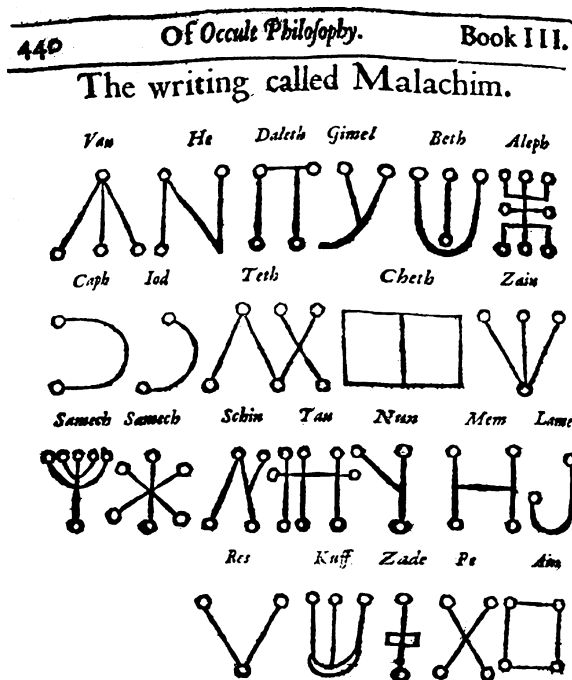 440 Of Occult Philosophy. Book III.
The writing called Malachim.
Vau He Daleth Gimel Beth Aleph
Caph Iod Teth Cheth Zain
Samech Samech Schin Tau Nun Mem Lame
Res Kuff Zade Pe Ain